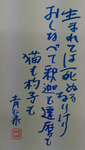 生まれては死ぬる
なりけり
おしなべて釈迦も達磨も
猫も杓子も